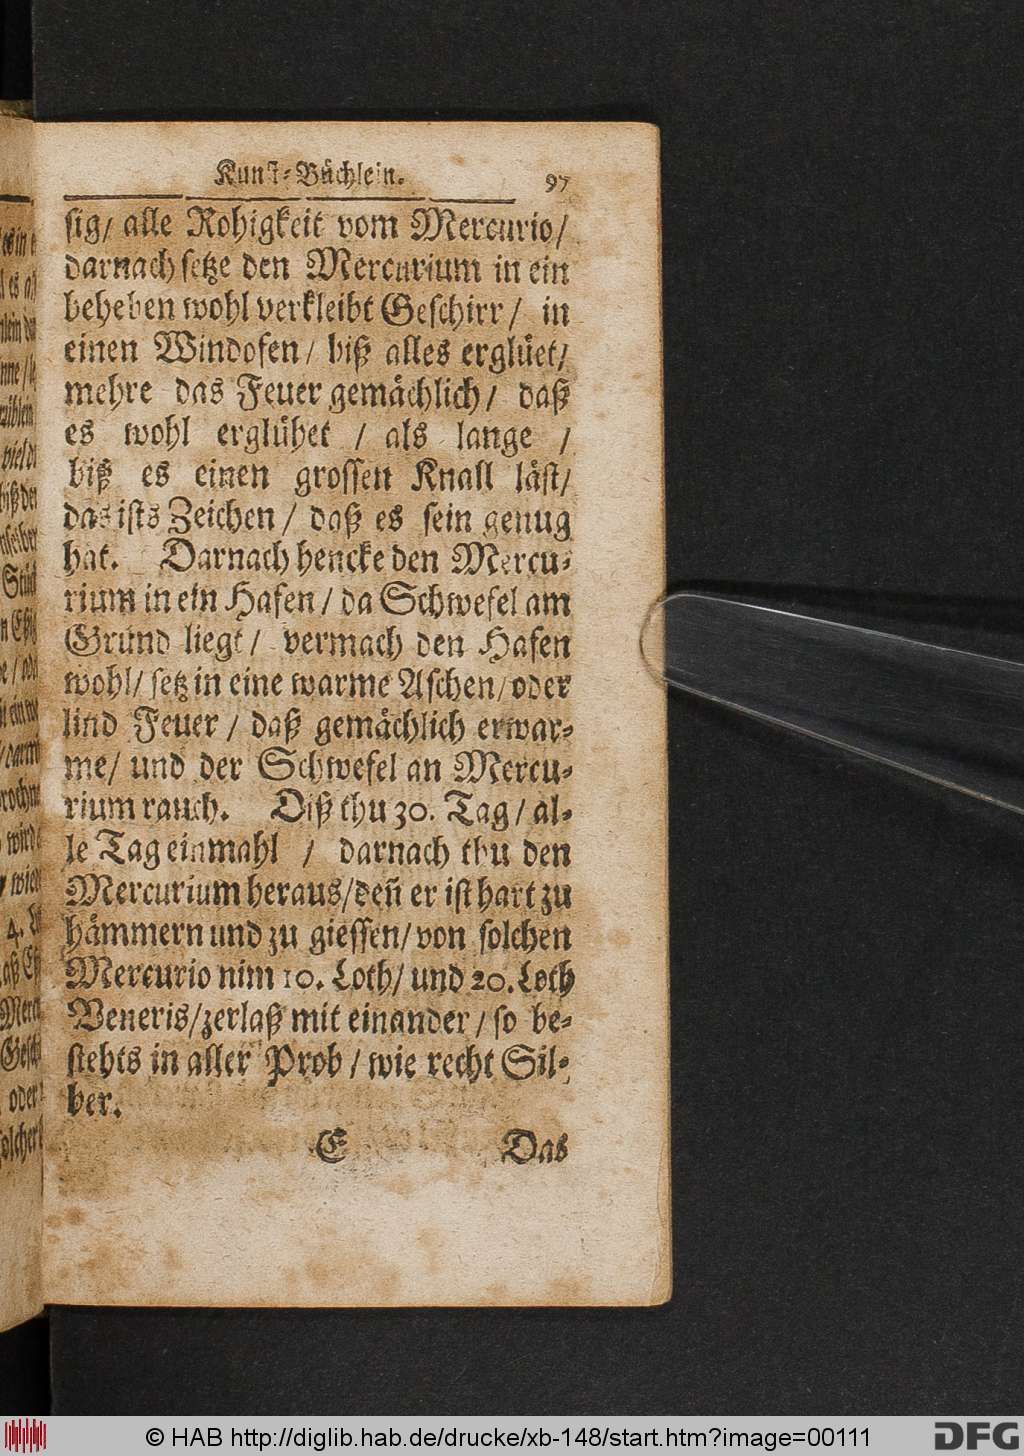 Kunst-Büchlein. 97
sig/ alle Rohigkeit vom Mercurio/
darnach setze den Mercurium in ein
beheben wohl verkleibt Geschirr/ in
einen Windofen/ biß alles erglüet/
mehre das Feuer gemächlich/ daß
es wohl erglühet / als lange /
biß es einen grossen Knall läst/
das ists Zeichen / daß es sein genug
hat. Darnach hencke den Mercu-
rium in ein Hafen / da Schwefel am
Grund liegt / vermach den Hafen
wohl/ setz in eine warme Aschen/ oder
lind Feuer / daß gemächlich erwar-
me/ und der Schwefel an Mercu-
rium rauch. Diß thu 30. Tag / al-
le Tag einmahl / darnach thu den
Mercurium heraus/ den̄ er ist hart zu
hämmern und zu giessen/ von solchen
Mercurio nim 10. Loth/ und 20. Loth
Veneris/ zerlaß mit einander / so be-
stehts in aller Prob / wie recht Sil-
ber.
E Das
© HAB http://diglib.hab.de/drucke/xb-148/start.htm?image=00111
DFG